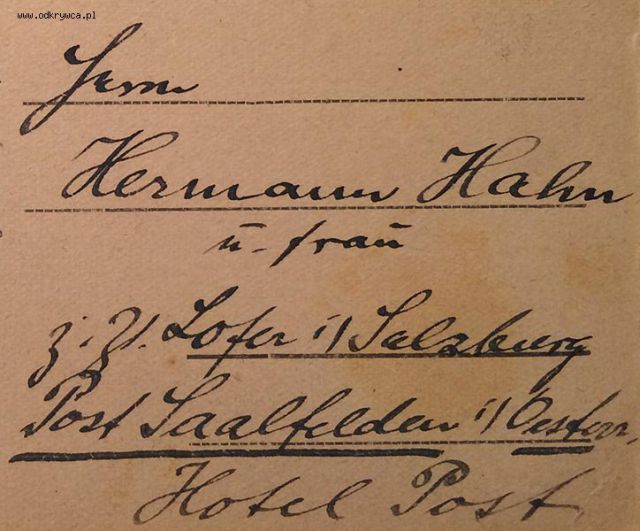 www.odkrywca.pl
Herrn
Hermann Hahn
u. Frau
z. Zt. Lofer i/ Salzburg
Post Saalfelden i/ Oesterr.
Hotel Post